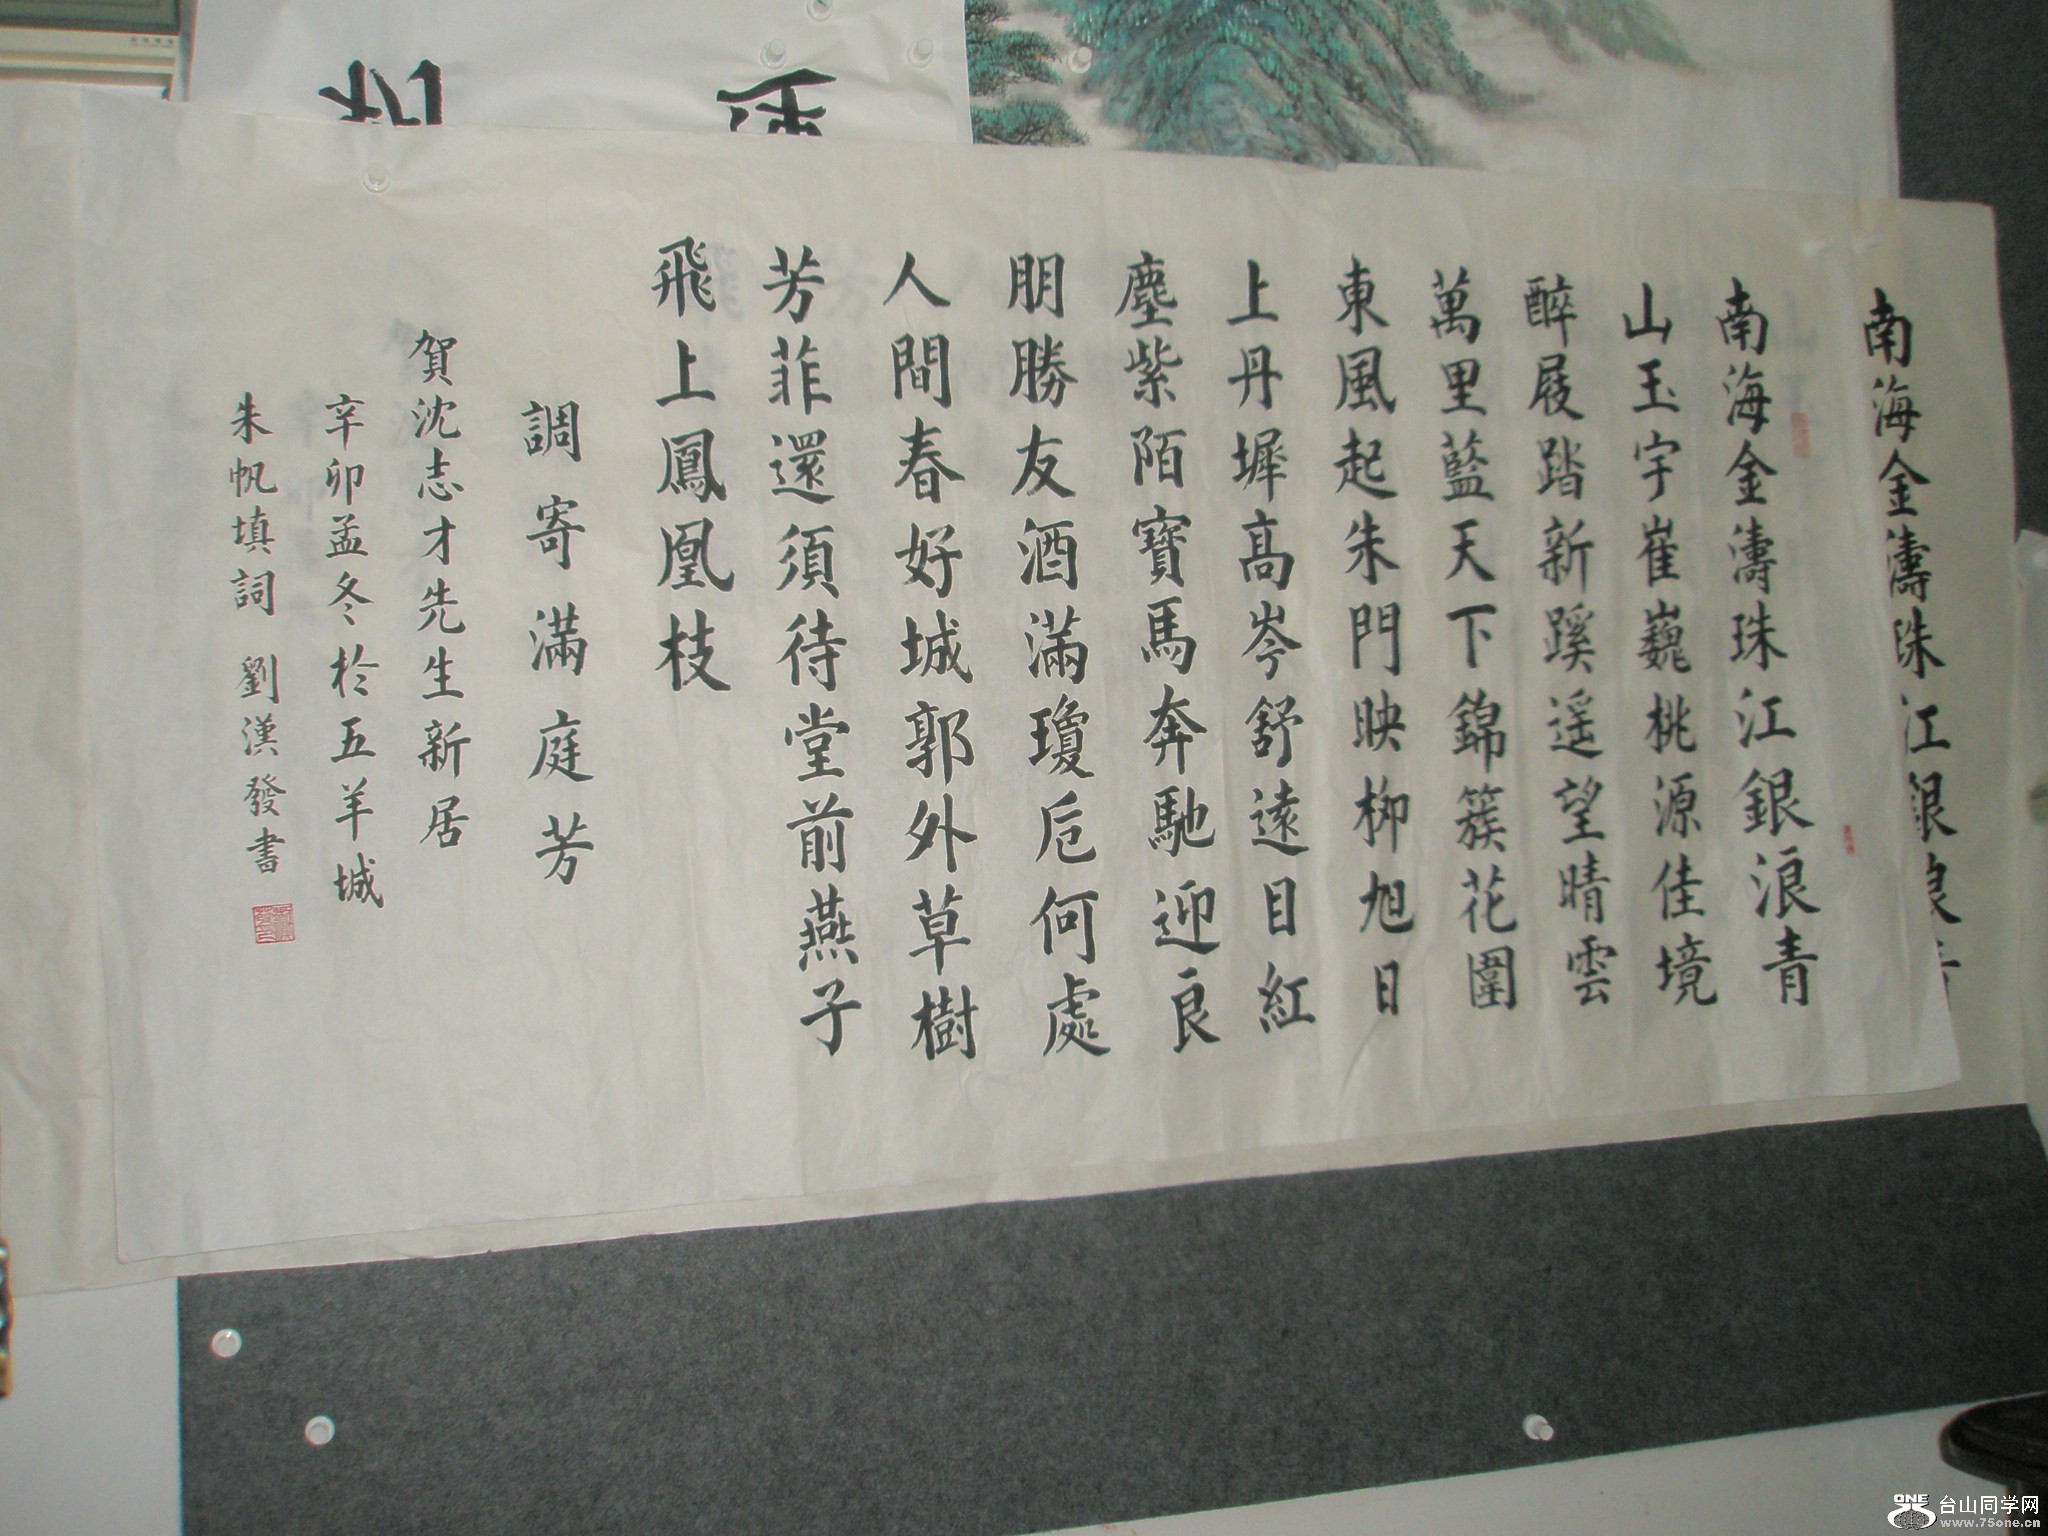 南海金濤珠江
南海金濤珠江銀浪青
山玉宇崔巍桃源佳境
醉屐踏新蹊遥望晴雲
萬里藍天下錦簇花圍
東風起朱門映柳旭日
上丹墀高岑舒遠目紅
塵紫陌寶馬奔馳迎良
朋勝友酒滿瓊卮何處
人間春好城郭外草樹
芳菲還須待堂前燕子
飛上鳳凰枝
調寄滿庭芳
賀沈志才先生新居
辛卯孟冬於五羊城
朱帆填詞 劉漢發書
ONE 台山同学网
www.75one.cn